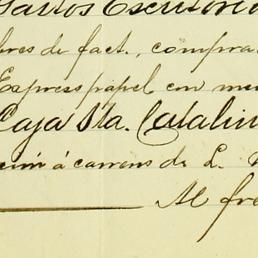 Gastos Escritorio
bres de fact., compra
Express papel con me
Caja Sta. Catalin
á carrens de L.
Al fre